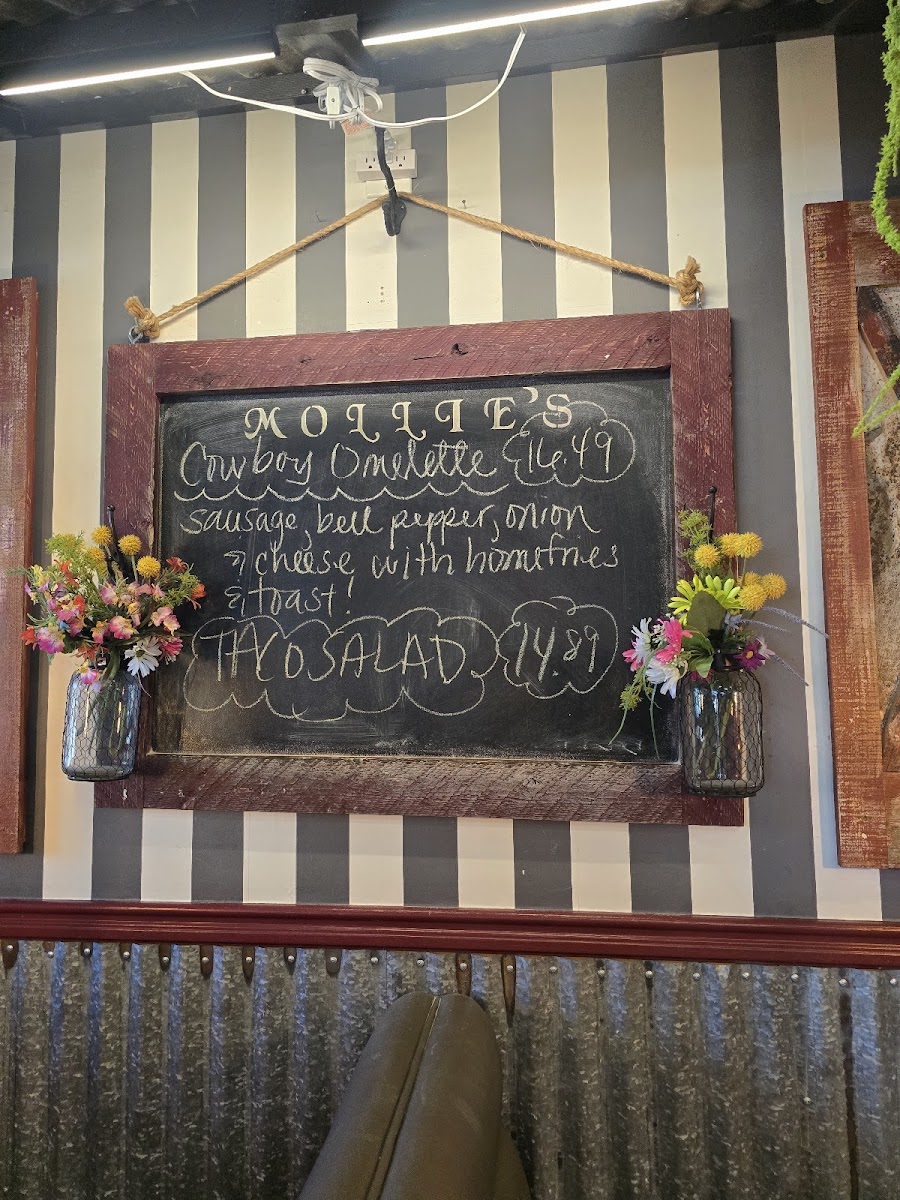 MOLLIE'S
Cowboy Omelette 16.49
sausage, bell pepper, onion
& cheese with homefries
& toast!
TACO SALAD 14.89